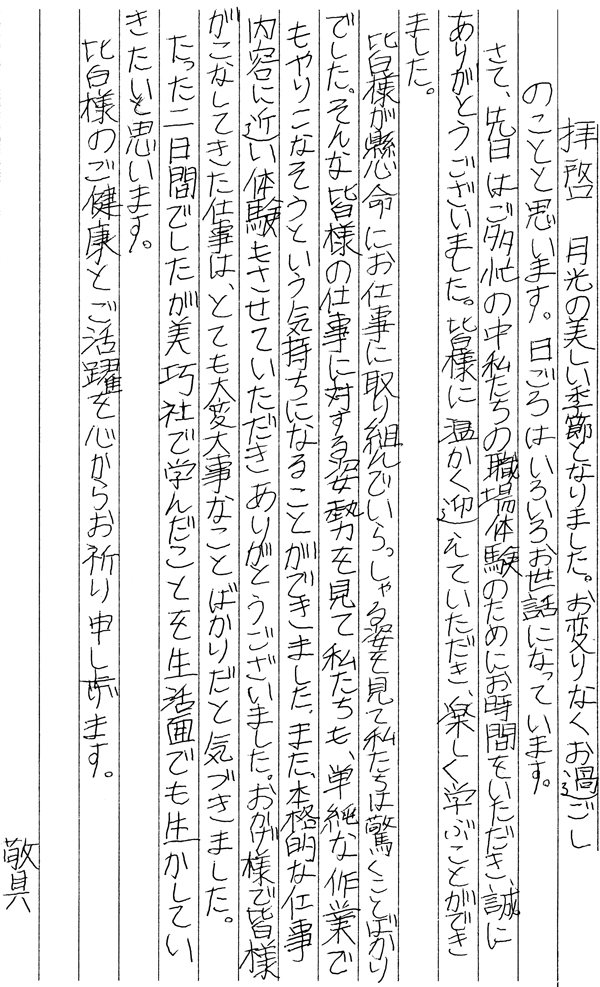 拝啓　月光の美しい季節となりました。お変りなくお過ごし
のことと思います。日ごろはいろいろお世話になっています。
さて、先日はご多忙の中私たちの職場体験のためにお時間をいただき、誠に
ありがとうございました。皆様に温かく迎えていただき、楽しく学ぶことができ
ました。
皆様が懸命にお仕事に取り組んでいらっしゃる姿を見て私たちは驚くことばかり
でした。そんな皆様の仕事に対する姿勢を見て私たちも、単純な作業で
もやりこなそうという気持ちになることができました。また、本格的な仕事
内容に近い体験もさせていただきありがとうございました。おかげ様で皆様
がこなしてきた仕事は、とても大変大事なことばかりだと気づきました。
たった二日間でしたが美巧社で学んだことを生活面でも生かしてい
きたいと思います。
皆様のご健康とご活躍を心からお祈り申し上げます。
敬具